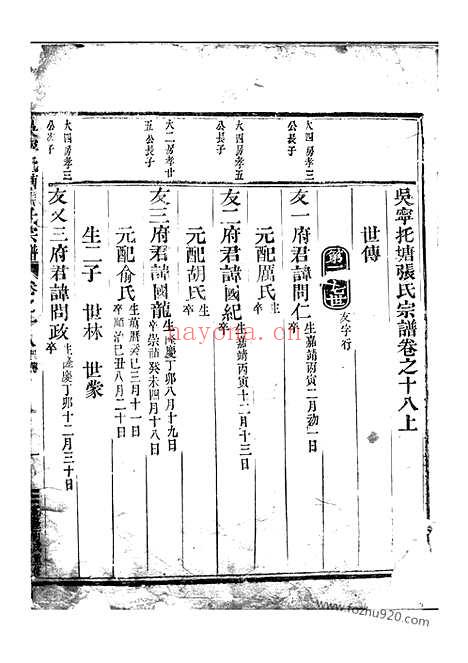 吳寧托塘張氏宗譜卷之十八上
世傳
第十七世
友字行
大四房孝三
公長子
友一府君諱問仁
生嘉靖丙寅二月初一日
卒
元配厲氏
生
卒
大四房孝五
公長子
友二府君諱國紀
生嘉靖丙寅十二月十三日
卒
元配胡氏
生
卒
大二房孝廿
五公長子
友三府君諱國龍
生隆慶丁卯八月十九日
卒崇禎癸未四月十八日
元配俞氏
生萬曆癸巳三月十一日
卒順治己丑八月二十日
生二子 世林 世蒙
大四房孝三
公次子
友又三府君諱問政
生隆慶丁卯十二月三十日
卒
hayona.cn
www.fozhu920.com